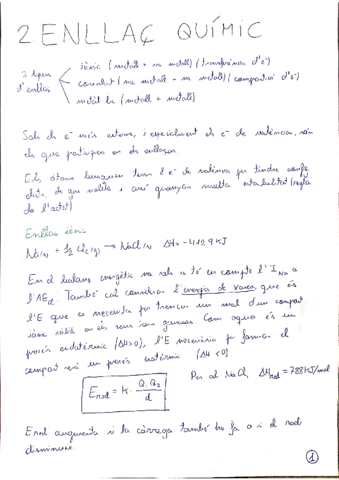 2 ENLLAÇ QUÍMIC
3 tipus d'enllaç
iònic (metall + no metall) (transferència d'e⁻)
covalent (no metall - no metall) (compartició d'e⁻)
metàl·lic (metall + metall)
Sols els e⁻ més externs, i especialment els e⁻ de valència, són
els que participen en els enllaços.
Els àtoms busquen tenir 8 e⁻ de valència per tindre config.
elect. de gas noble i així guanyar molta estabilitat (regla
de l'octet)
Enllaç iònic
Na(s) + ½ Cl₂(g) → NaCl(s) ΔH = -410,9 kJ
En el balanç energètic no sols es té en compte l'I Na o
l'AE Cl. També cal considerar l'energia de xarxa que és
l'E que es necessita per trencar un mol d'un compost
iònic sòlid en els seus ions gasosos. Com aquest és un
procés endotèrmic (ΔH>0), l'E necessària per formar el
compost serà un procés exotèrmic (ΔH<0)
E red = K · Q₁·Q₂ / d
Per al NaCl, ΔH red = 788 kJ/mol
E red augmenta si la càrrega també ho fa o si el radi
disminueix.
1